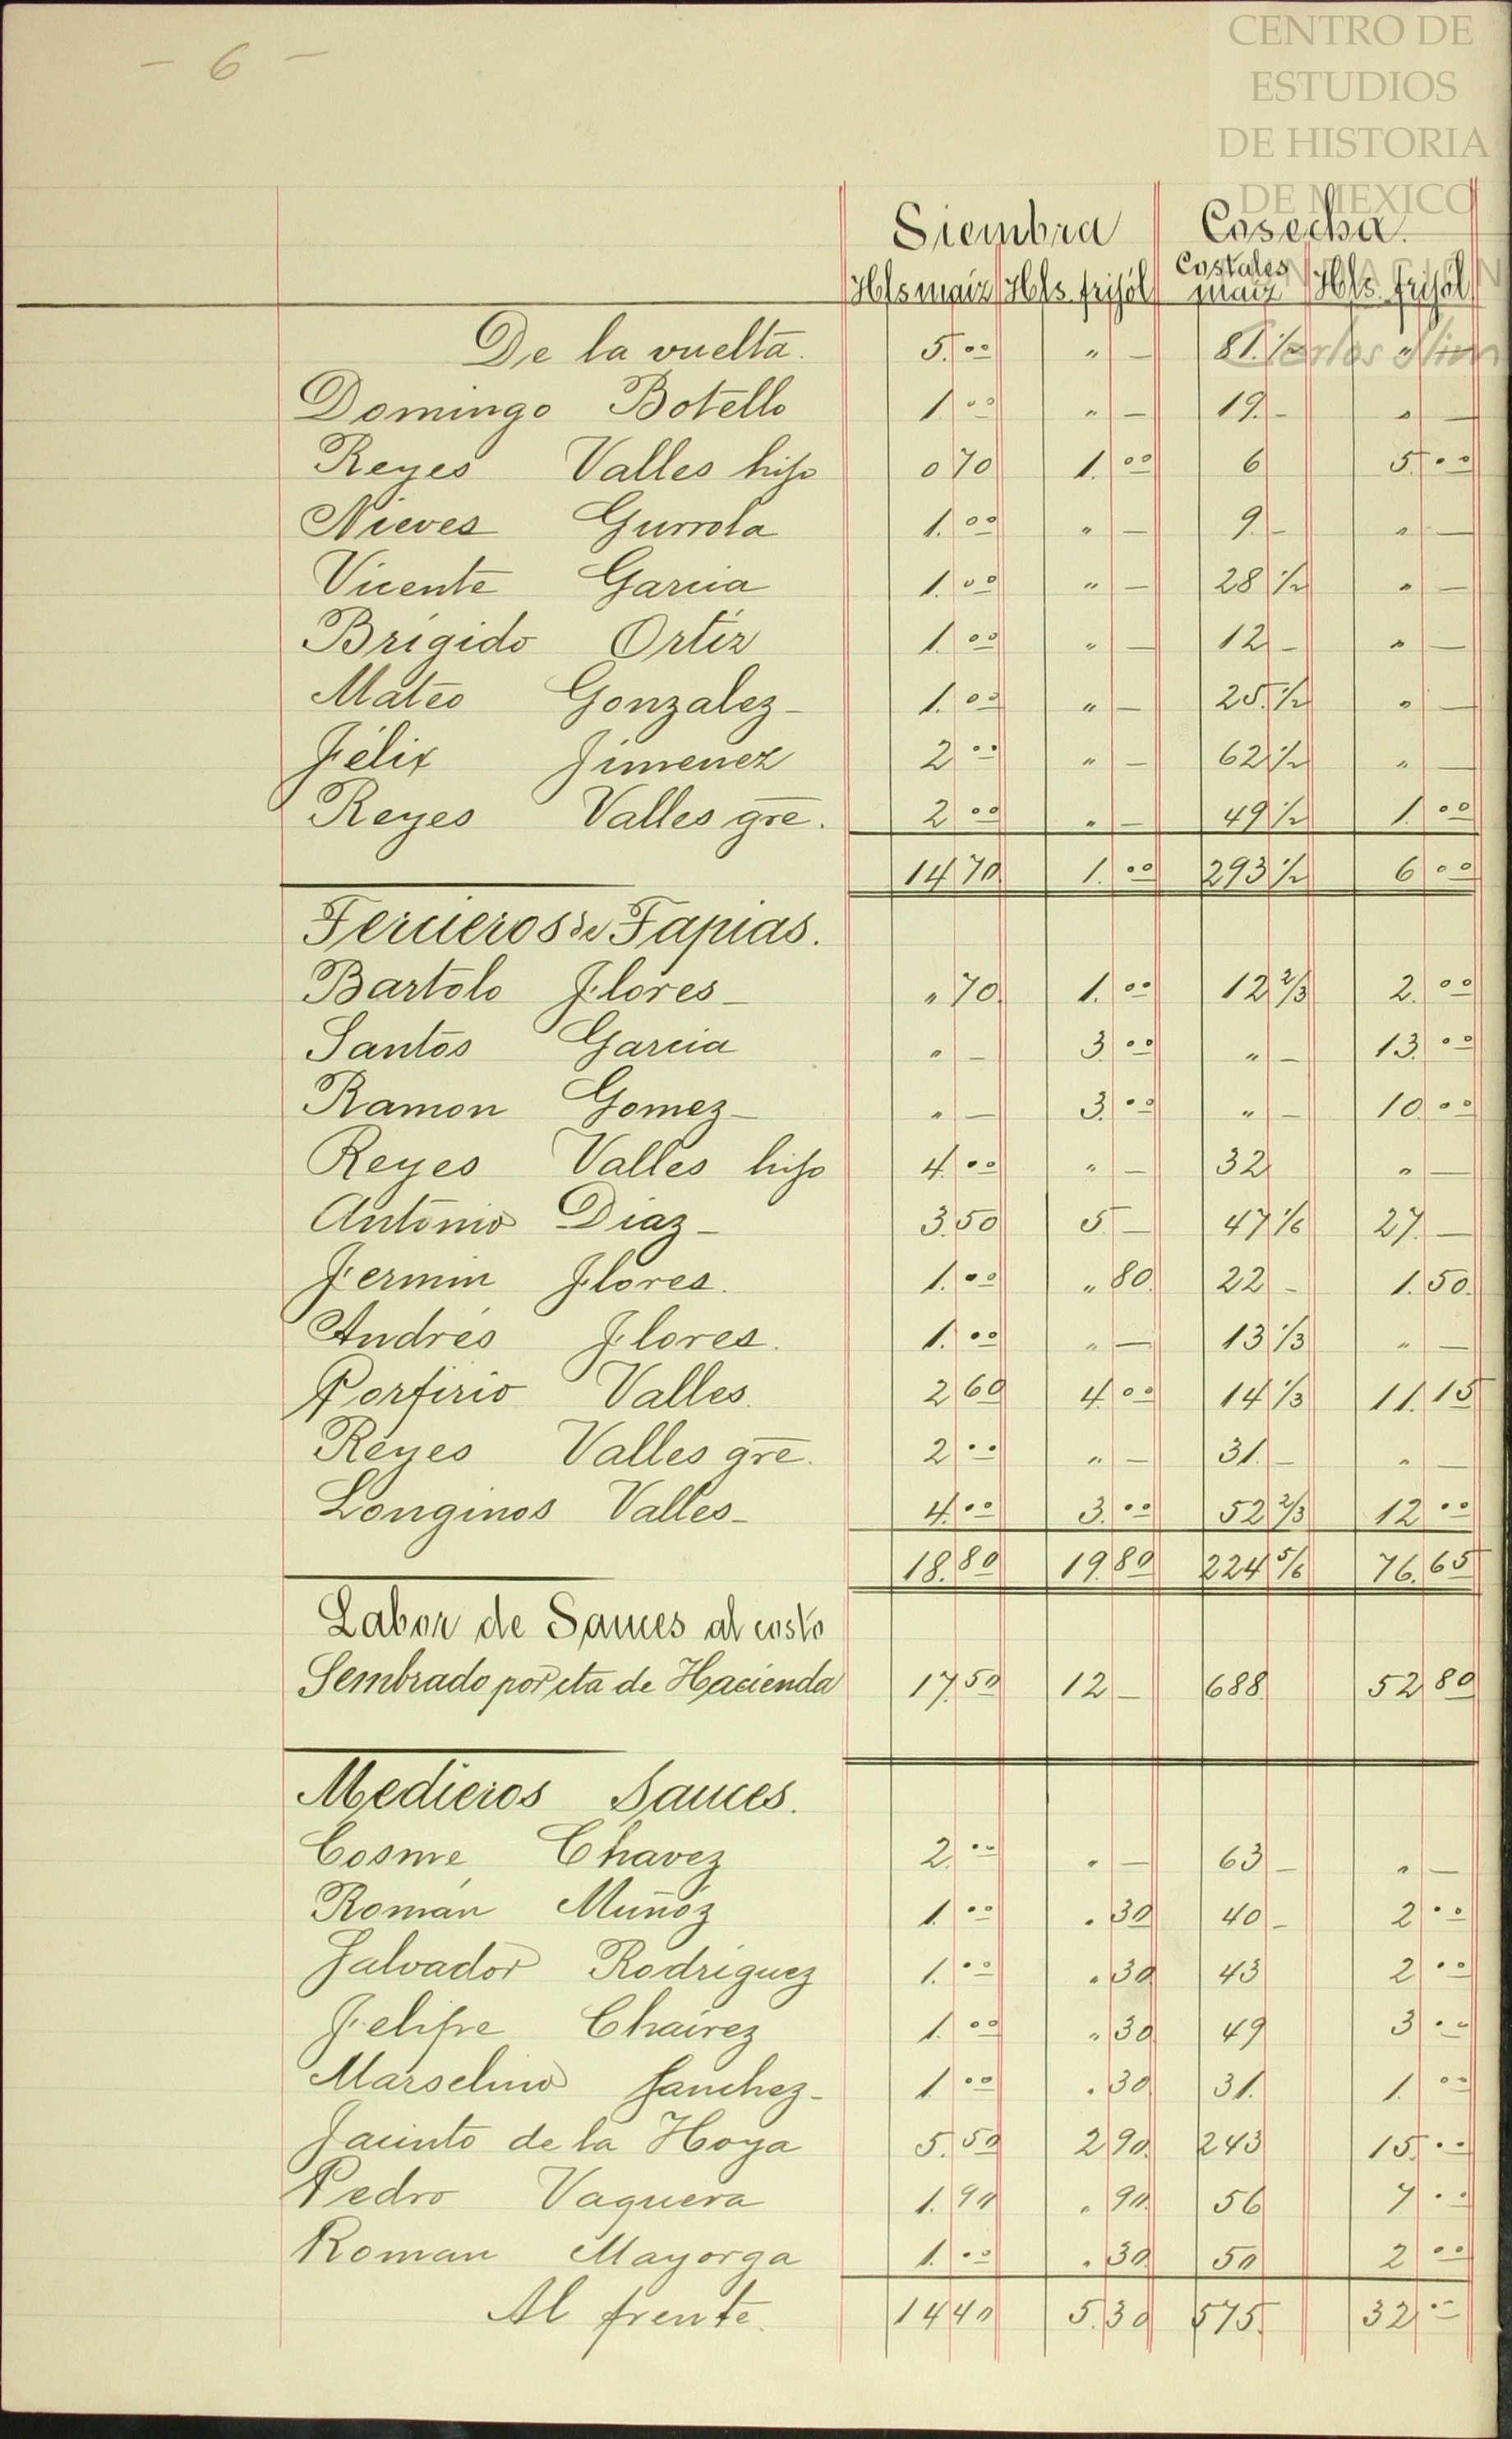 - 6 -
CENTRO DE
ESTUDIOS
DE HISTORIA
DE MEXICO
FUNDACIÓN
Carlos Slim
Siembra Cosecha.
Hls maíz Hls. frijól Costales maíz Hls. frijól
De la vuelta. 5.00 " — 81.1/2 " —
Domingo Botello 1.00 " — 19.- " —
Reyes Valles hijo 0 70 1.00 6 5.00
Nieves Gurrola 1.00 " — 9.- " —
Vicente Garcia 1.00 " — 28 1/2 " —
Brígido Ortíz 1.00 " — 12 - " —
Mateo Gonzalez - 1.00 " — 25.1/2 " —
Félix Jimenez 2 00 " — 62 1/2 " —
Reyes Valles gre. 2 00 " — 49 1/2 1.00
14 70 1.00 293 1/2 6 00
Tercieros de Tapias.
Bartolo Flores - " 70. 1.00 12 2/3 2.00
Santos Garcia " — 3 00 " — 13.00
Ramon Gomez - " — 3.00 " — 10 00
Reyes Valles hijo 4.00 " — 32 " —
Antonio Diaz - 3.50 5.— 47 1/6 27.—
Fermin Flores. 1.00 " 80. 22 - 1.50.
Andrés Flores. 1.00 " — 13 1/3 " —
Porfirio Valles. 2 60 4.00 14 1/3 11.15
Reyes Valles gre. 2 00 " — 31.- " —
Longinos Valles - 4.00 3.00 52 2/3 12 00
18.80 19.80 224 5/6 76.65
Labor de Sauces al costo
Sembrado por cta de Hacienda 17.50 12 — 688. 52 80
Medieros Sauces.
Cosme Chavez 2.00 " — 63 - " —
Román Muñóz 1.00 " 30 40 - 2 00
Salvador Rodriguez 1.00 " 30 43 2 00
Felipe Chairez 1.00 " 30 49 3 00
Marselino Sanchez - 1.00 " 30. 31. 1.00
Jacinto de la Hoya 5.50 2 90. 243 15.00
Pedro Vaquera 1.90 " 90. 56 7 00
Roman Mayorga 1.00 " 30. 50 2 00
Al frente. 14 40 5.30 575. 32 00